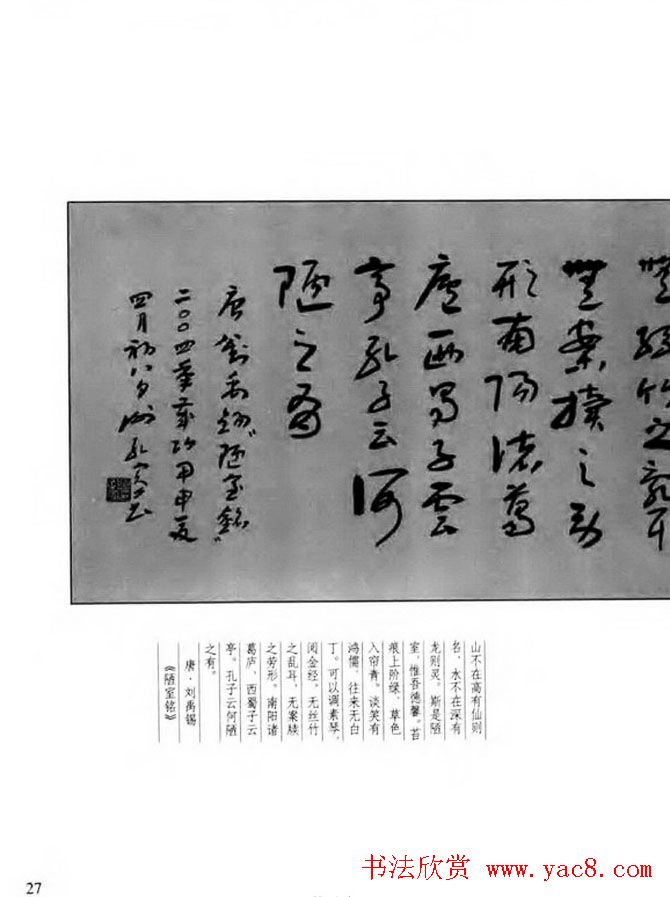 無絲竹之亂耳
無案牘之勞
形南陽諸葛
廬西蜀子雲
亭孔子云何
陋之有
唐劉禹錫“陋室銘”
二〇〇四年歲次甲申夏
四月初八日
山不在高有仙则
名，水不在深有
龙则灵。斯是陋
室，惟吾德馨。苔
痕上阶绿，草色
入帘青。谈笑有
鸿儒，往来无白
丁。可以调素琴，
阅金经。无丝竹
之乱耳，无案牍
之劳形。南阳诸
葛庐，西蜀子云
亭。孔子云何陋
之有。
唐·刘禹锡
《陋室铭》
27
书法欣赏 www.yac8.com